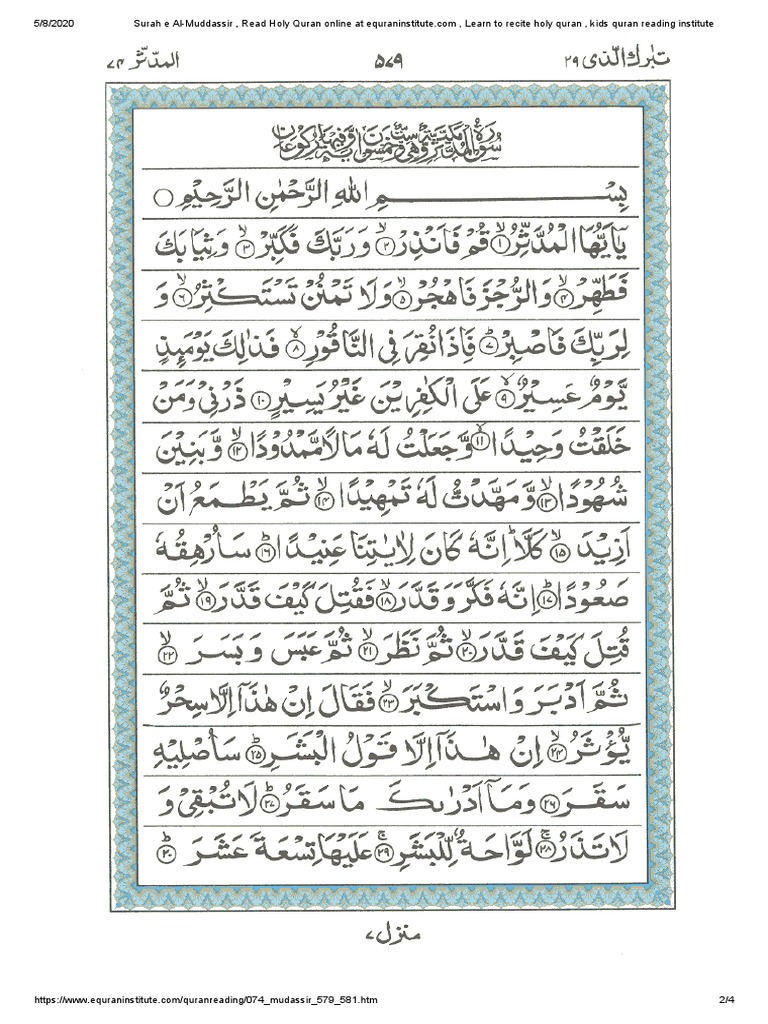 5/8/2020 Surah e Al-Muddassir , Read Holy Quran online at equraninstitute.com , Learn to recite holy quran , kids quran reading institute
تبرك الذي ٢٩ ۵۷۹ المدّثّر ۷۴
سُوْرَةُ الْمُدَّثِّرِ مَكِّيَّةٌ وَّهِيَ سِتٌّ وَّخَمْسُوْنَ اٰيَةً وَّفِيْهَا رُكُوْعَانِ
بِسْــــــــــــمِ اللهِ الرَّحْمٰنِ الرَّحِيْمِ ○
يٰۤاَيُّهَا الْمُدَّثِّرُ ۙ﴿۱﴾ قُمْ فَاَنْذِرْ ۙ﴿۲﴾ وَرَبَّكَ فَكَبِّرْ ۙ﴿۳﴾ وَثِيَابَكَ
فَطَهِّرْ ۙ﴿۴﴾ وَالرُّجْزَ فَاهْجُرْ ۙ﴿۵﴾ وَلَا تَمْنُنْ تَسْتَكْثِرُ ۙ﴿۶﴾ وَ
لِرَبِّكَ فَاصْبِرْ ؕ﴿۷﴾ فَاِذَا نُقِرَ فِي النَّاقُوْرِ ۙ﴿۸﴾ فَذٰلِكَ يَوْمَئِذٍ
يَّوْمٌ عَسِيْرٌ ۙ﴿۹﴾ عَلَى الْكٰفِرِيْنَ غَيْرُ يَسِيْرٍ ﴿۱۰﴾ ذَرْنِيْ وَمَنْ
خَلَقْتُ وَحِيْدًا ۙ﴿۱۱﴾ وَّجَعَلْتُ لَهٗ مَالًا مَّمْدُوْدًا ۙ﴿۱۲﴾ وَّبَنِيْنَ
شُهُوْدًا ۙ﴿۱۳﴾ وَّمَهَّدْتُّ لَهٗ تَمْهِيْدًا ۙ﴿۱۴﴾ ثُمَّ يَطْمَعُ اَنْ
اَزِيْدَ ۙ﴿۱۵﴾ كَلَّا ؕ اِنَّهٗ كَانَ لِاٰيٰتِنَا عَنِيْدًا ؕ﴿۱۶﴾ سَاُرْهِقُهٗ
صَعُوْدًا ؕ﴿۱۷﴾ اِنَّهٗ فَكَّرَ وَقَدَّرَ ۙ﴿۱۸﴾ فَقُتِلَ كَيْفَ قَدَّرَ ۙ﴿۱۹﴾ ثُمَّ
قُتِلَ كَيْفَ قَدَّرَ ۙ﴿۲۰﴾ ثُمَّ نَظَرَ ۙ﴿۲۱﴾ ثُمَّ عَبَسَ وَبَسَرَ ۙ﴿۲۲﴾
ثُمَّ اَدْبَرَ وَاسْتَكْبَرَ ۙ﴿۲۳﴾ فَقَالَ اِنْ هٰذَاۤ اِلَّا سِحْرٌ
يُّؤْثَرُ ۙ﴿۲۴﴾ اِنْ هٰذَاۤ اِلَّا قَوْلُ الْبَشَرِ ؕ﴿۲۵﴾ سَاُصْلِيْهِ
سَقَرَ ﴿۲۶﴾ وَمَاۤ اَدْرٰىكَ مَا سَقَرُ ؕ﴿۲۷﴾ لَا تُبْقِيْ وَ
لَا تَذَرُ ۚ﴿۲۸﴾ لَوَّاحَةٌ لِّلْبَشَرِ ۚ﴿۲۹﴾ عَلَيْهَا تِسْعَةَ عَشَرَ ؕ﴿۳۰﴾
منزل ۷
https://www.equraninstitute.com/quranreading/074_mudassir_579_581.htm 2/4